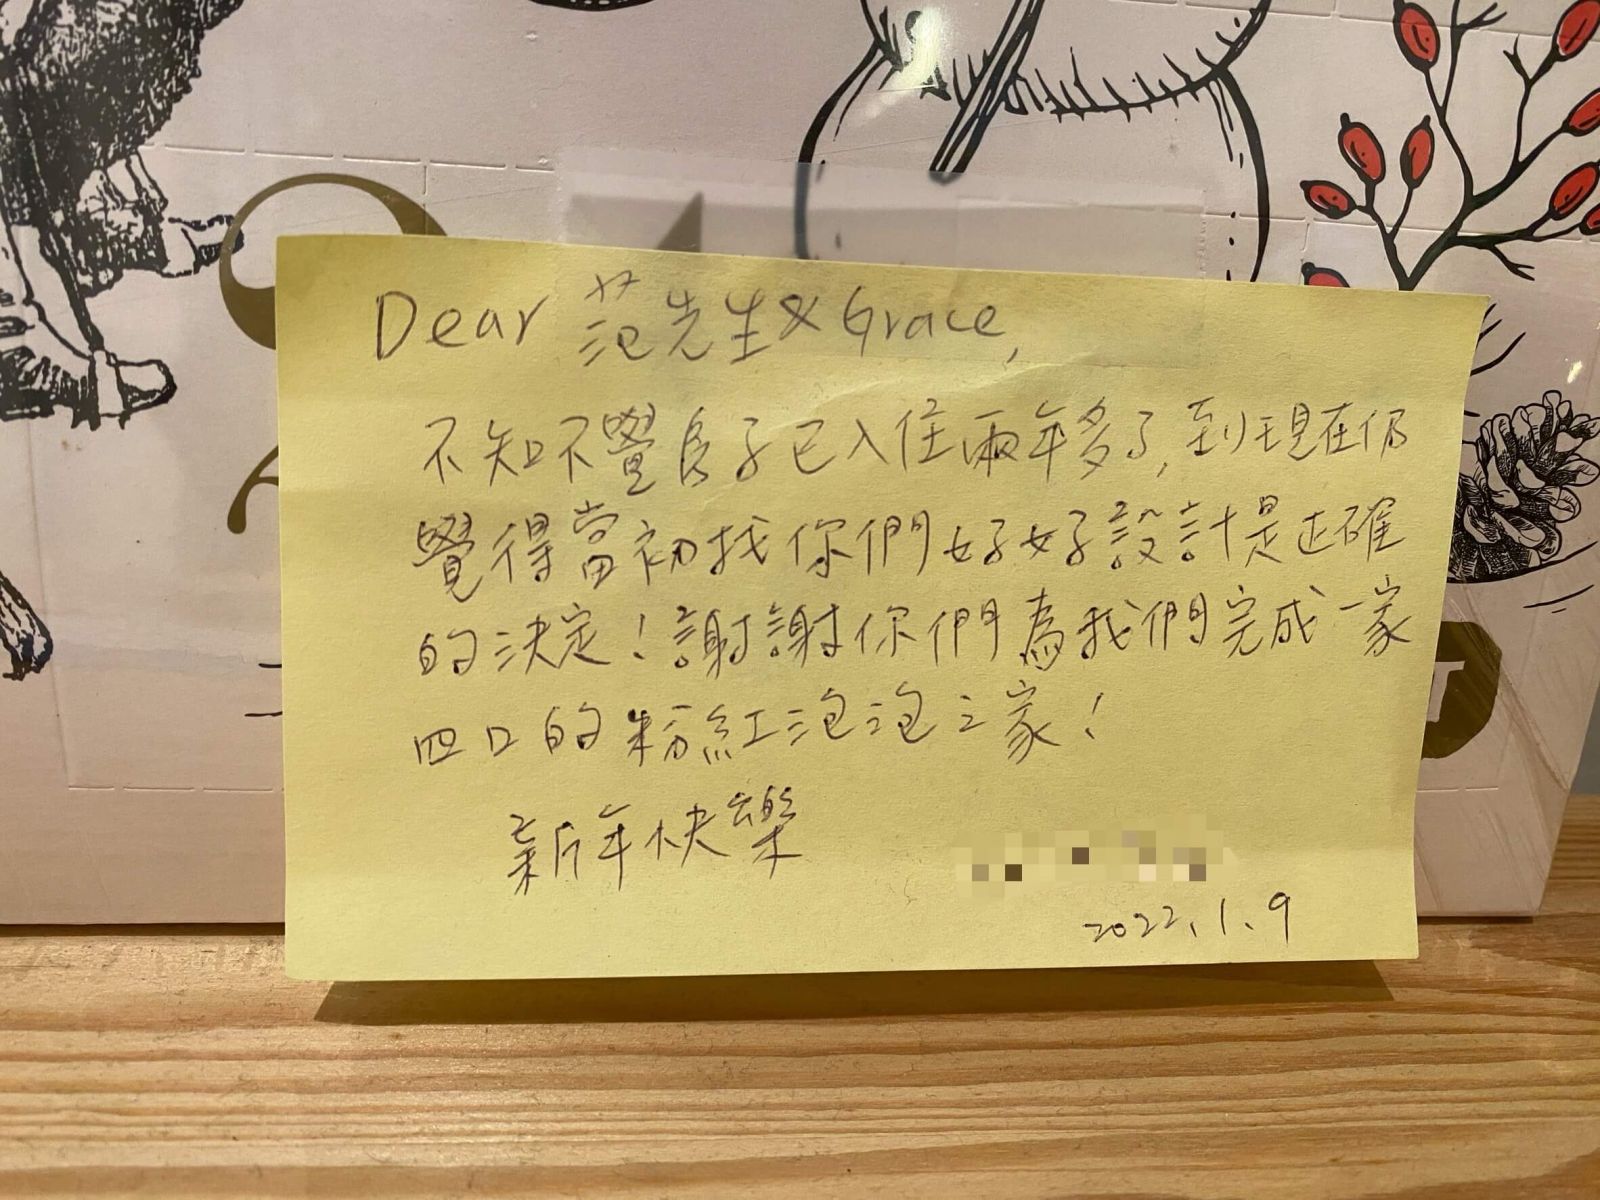 Dear 范先生 & Grace,
不知不覺房子已入住兩年多了,到現在仍
覺得當初找你們好好設計是正確
的決定!謝謝你們為我們完成一家
四口的粉紅泡泡之家!
新年快樂
2022.1.9